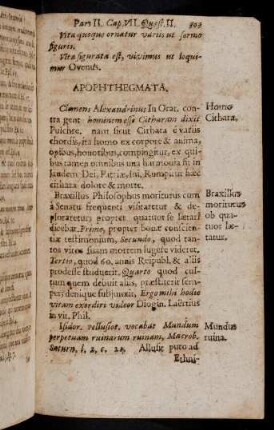 Part II. Cap. VII. Quæst. II. 303
Vita quoque ornatur variis ut sermo
figuris.
Vita figurata est, vivimus ut loqui-
mur Ovenus.
APOPHTHEGMATA.
Clemens Alexandrinus In Orat. con-
tra gent hominem esse Citharam dixit
Pulchre, nam sicut Cithara è variis
chordis, ita homo ex corpore & anima,
opibus, honoribus, compingitur, ex qui-
bus tamen omnibus una harmonia fit in
laudem Dei, Patriæ, sui, Rumpitur hæc
cithara dolore & morte.
Homo
Cithara.
Braxillus Philosophus moriturus cum
à Senatu frequenti visitaretur &
deploraretur; propter quatuor se lætari
dicebat. Primo, propter bonæ conscien-
tiæ testimonium, Secundo, quod tan-
tos viros suam mortem lugere videret,
Tertio, quod 60. annis Reipubl. & aliis
prodesse studuerit. Quarto quod cul-
tum quem debuit aliis, præstiterit sem-
per: denique subjunxit, Ergo mihi hodie
vitam exegisse videor Diogin. Laërtius
in vit. Phil.
Braxillus
moriturus
ob qua-
tuor læ-
tatus.
Isidor. vocabat Mundum
perpetuam ruinarum ruinam, Macrob.
Saturn. l. 2. c. 21. Allusit puto ad
Mundus
ruina.
Ethni-